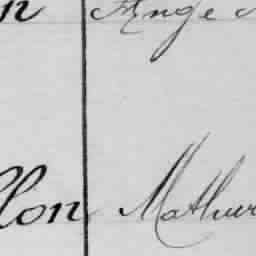 n Ange
llon Mathur